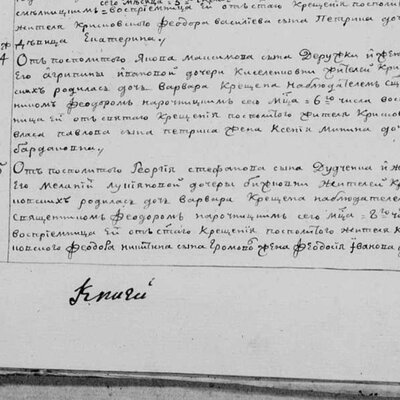 смѣлницкимъ воспрїемница Ей отъ стаго Крещенїя посполи
жителя Крисковского Феодора василїева сына Петрика доч
дѣвица Екатерина,
4 Отъ посполитого Якова максимова сына Деружки и жен
Его Агрипины ивановой дочери Киселенковни жителей Кри
скихъ родилась дочь Варвара Крещена наблюдателемъ сщ
нникомъ Феодоромъ нарочицкимъ сего Мца = 6го числа вос
ница Ей отъ святаго Крещенїя посполитого жителя Криско
власа павлова сына петрика жена Ксенїя Никина до
Богдановна,
Отъ посполитого Георгїя стефанова сына Дудченка и ж
Его Меланїй лукїяновой дочеры бихновни жителей К
новскихъ родилась дочь варвара Крещена наблюдателе
Священникомъ Феодоромъ нарочицкимъ сего Мца = 8го чи
воспрїемница Ей отъ стаго Крещенїя посполитого жителя К
новского Феодора никитина сына Громова жена Феодосїя ивано